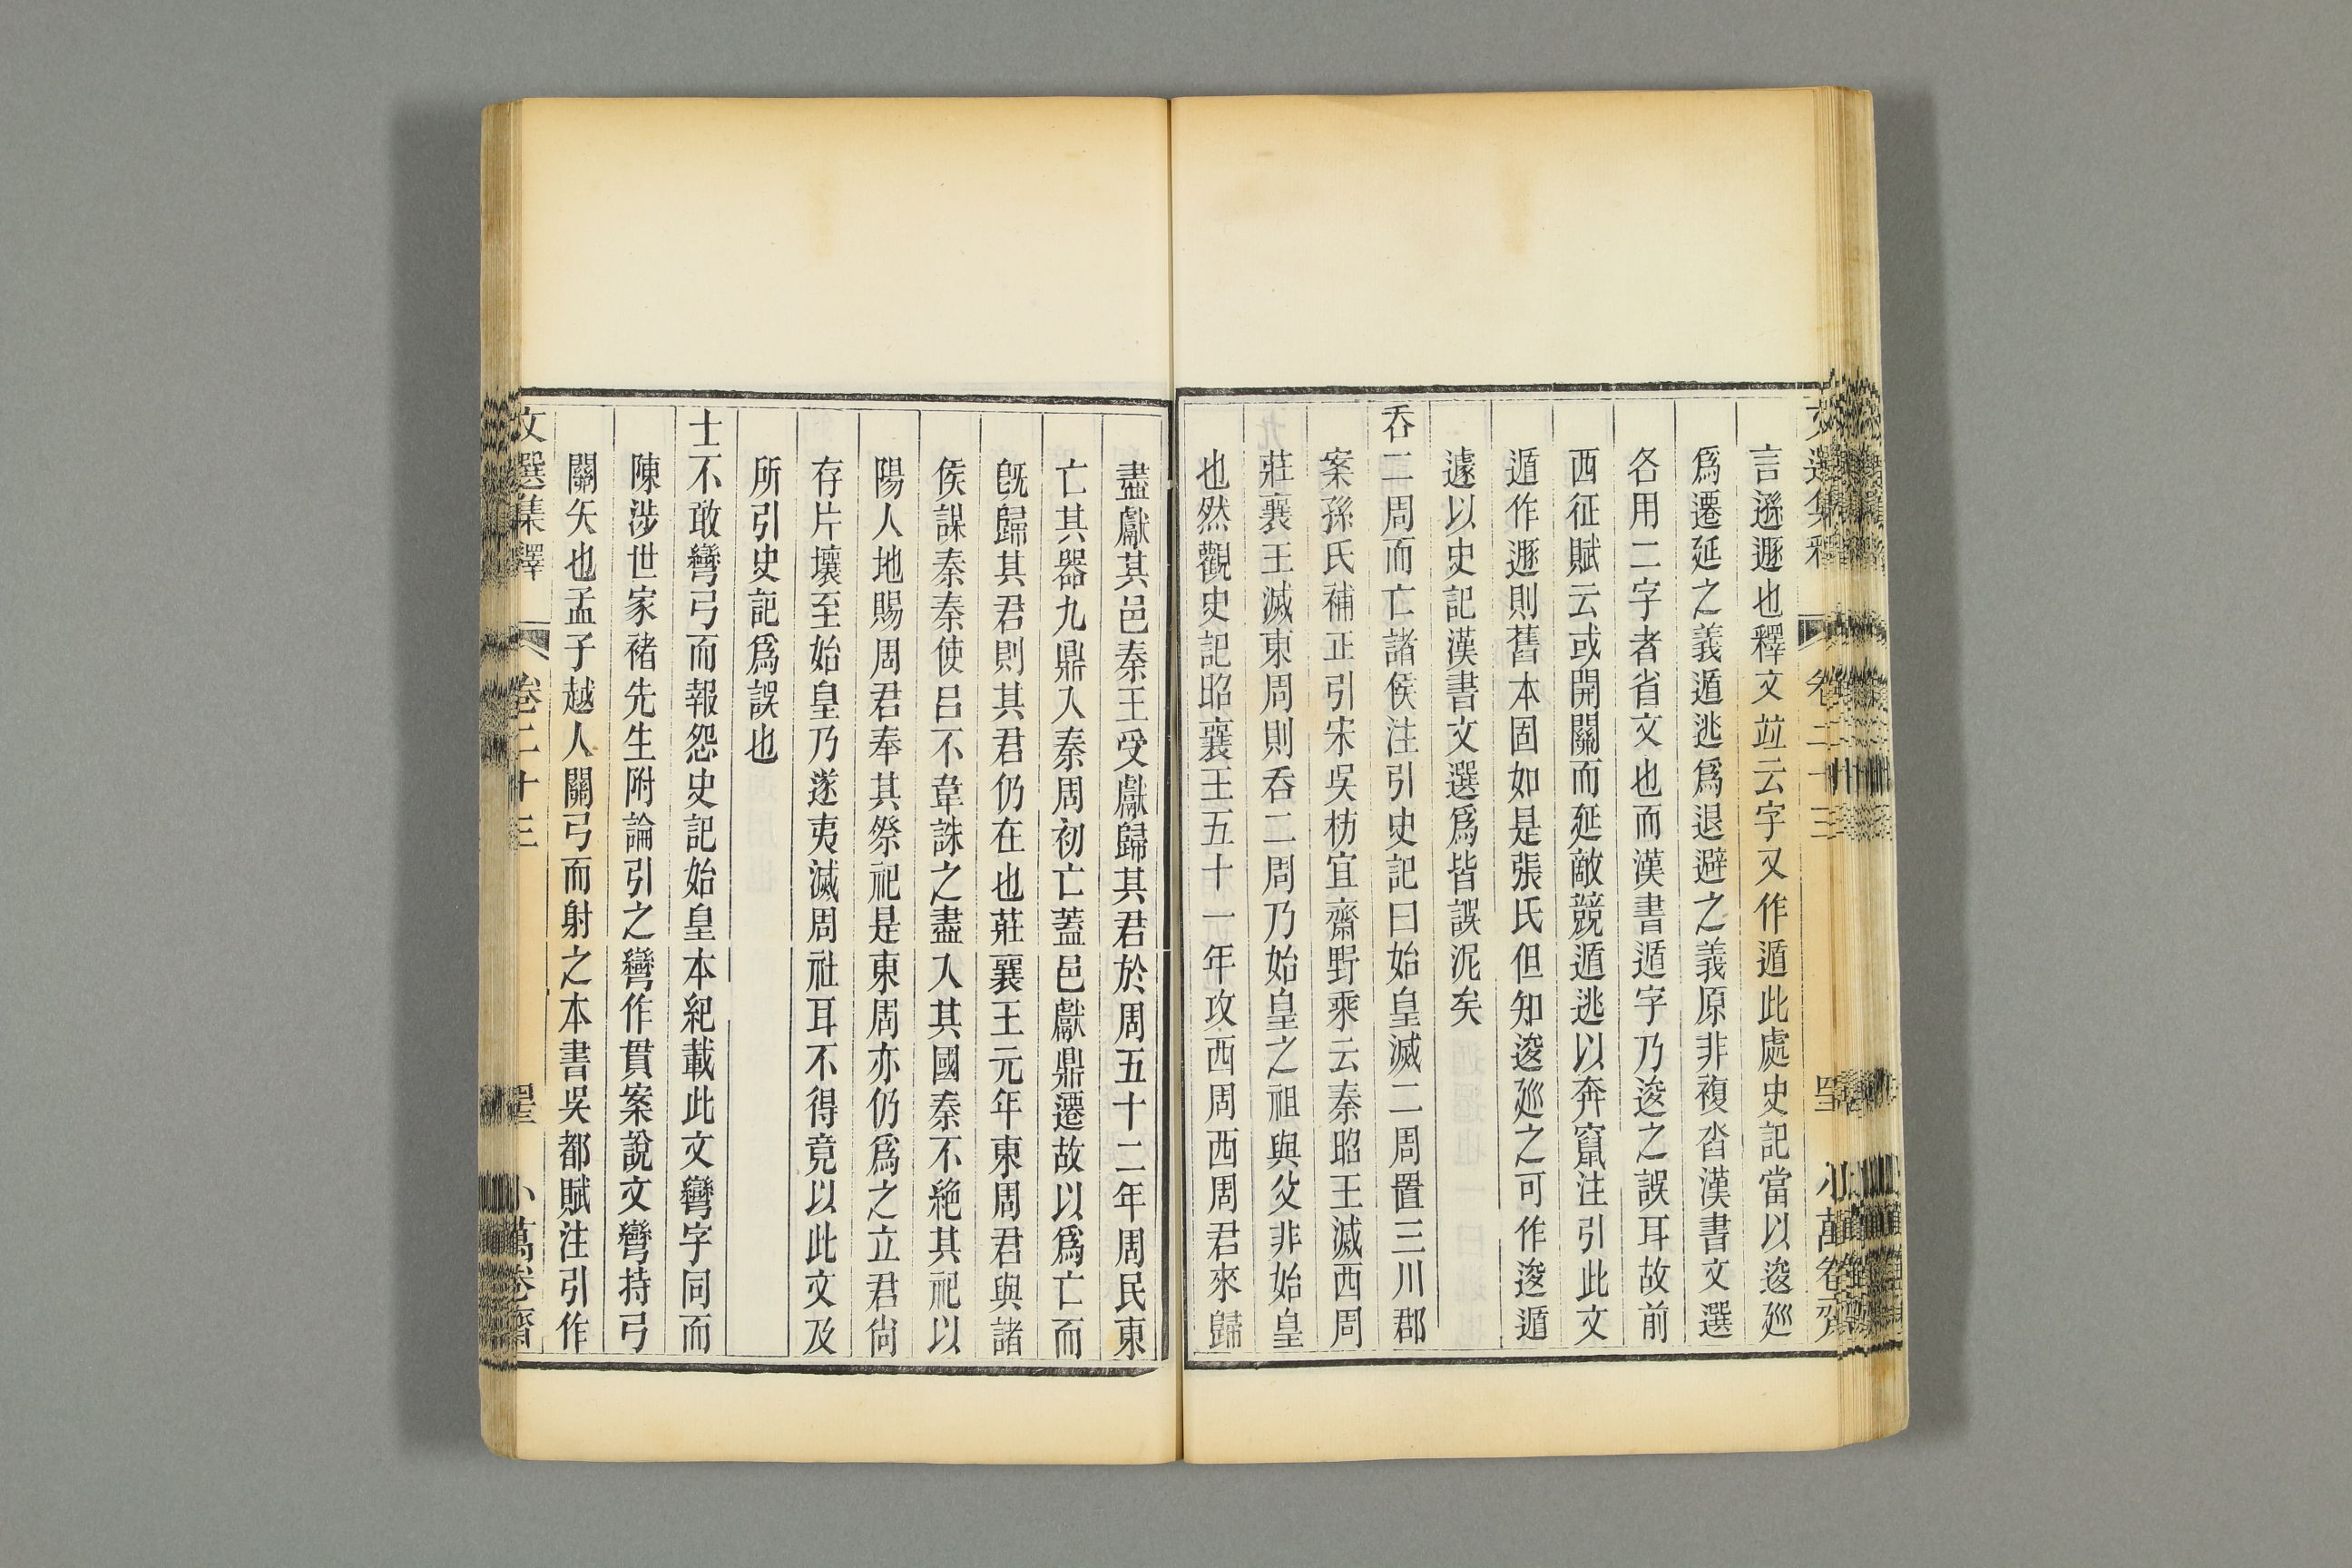 文選集釋 卷二十三 小萬卷齋
言遜遯也釋文竝云字又作遁此處史記當以逡巡
爲遷延之義遁逃爲退避之義原非複沓漢書文選
各用二字者省文也而漢書遁字乃逡之誤耳故前
西征賦云或開關而延敵競遁逃以奔竄注引此文
遁作遯則舊本固如是張氏但知逡巡之可作逡遁
遽以史記漢書文選爲皆誤泥矣
吞二周而亡諸侯注引史記曰始皇滅二周置三川郡
案孫氏補正引宋吳枋宜齋野乘云秦昭王滅西周
莊襄王滅東周則吞二周乃始皇之祖與父非始皇
也然觀史記昭襄王五十一年攻西周西周君來歸
盡獻其邑秦王受獻歸其君於周五十二年周民東
亡其器九鼎入秦周初亡蓋邑獻鼎遷故以爲亡而
旣歸其君則其君仍在也莊襄王元年東周君與諸
侯謀秦秦使呂不韋誅之盡入其國秦不絶其祀以
陽人地賜周君奉其祭祀是東周亦仍爲之立君尙
存片壤至始皇乃遂夷滅周社耳不得竟以此文及
所引史記爲誤也
士不敢彎弓而報怨史記始皇本紀載此文彎字同而
陳涉世家褚先生附論引之彎作貫案說文彎持弓
關矢也孟子越人關弓而射之本書吳都賦注引作
文選集釋 卷二十三 小萬卷齋